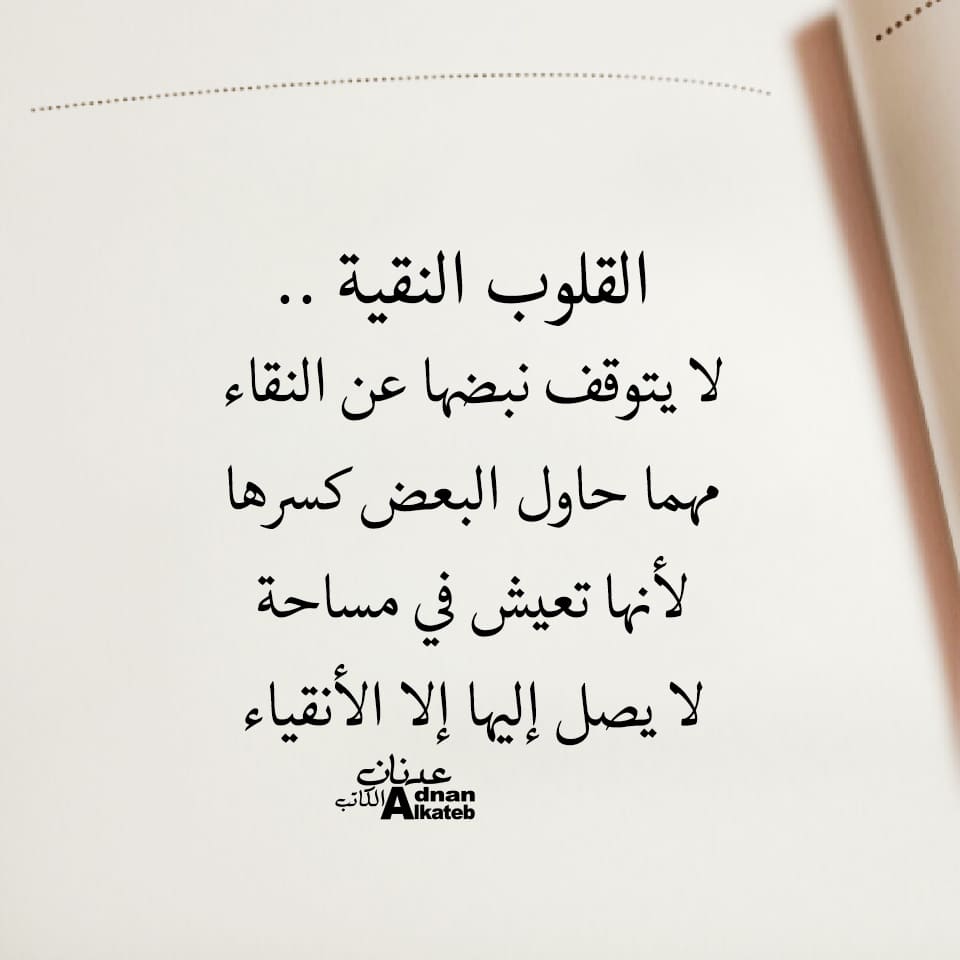 القلوب النقية ..
لا يتوقف نبضها عن النقاء
مهما حاول البعض كسرها
لأنها تعيش في مساحة
لا يصل إليها إلا الأنقياء
عدنان
الكاتب Adnan
Alkateb